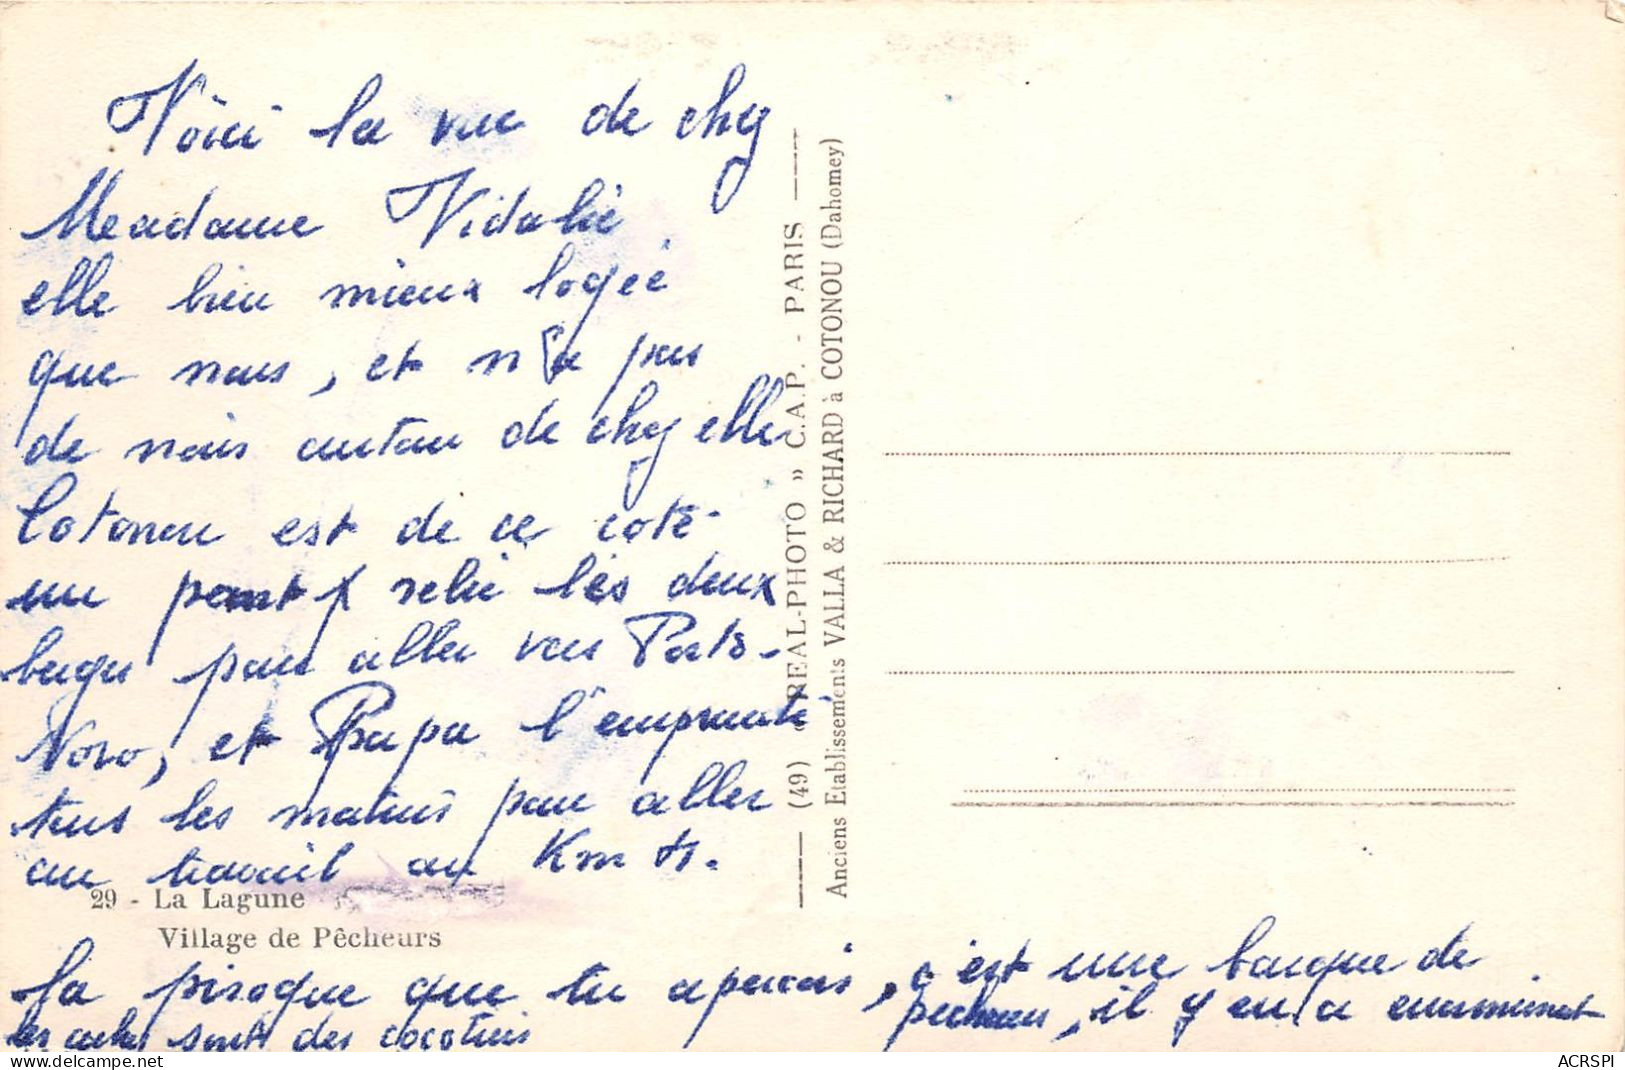 Voici la vue de chez
Meadame Vidalie
elle bien mieux logée
que nous, et n'a pas
de noirs autau de chez elle
Cotonou est de ce coté
un pont relie les deux
pour aller vers Porto-
Novo, et Papa l'emprunte
tous les matins pour aller
au travail au Km
29 - La Lagune
Village de Pêcheurs
La pirogue que tu apercois, c'est une barque de
pecheurs, il y en a enormement.
les arbres sont des cocotiers
(49) « REAL-PHOTO » C.A.P. - PARIS
Anciens Etablissements VALLA & RICHARD à COTONOU (Dahomey)
ACRSPI